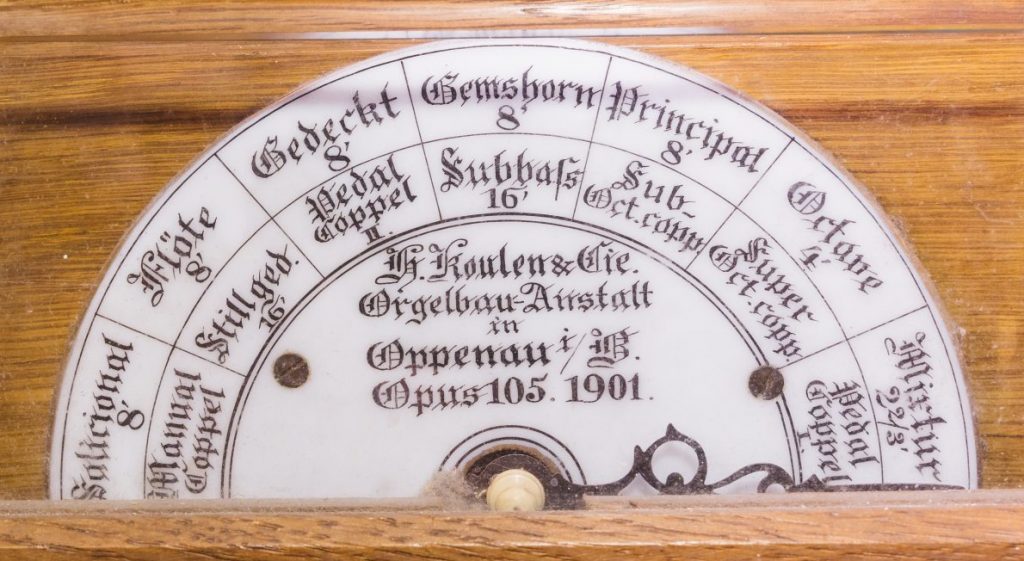 Salicional
8
Flöte
8'
Gedeckt
8'
Gemshorn
8'
Principal
8'
Octave
4'
Mixtur
2 2/3'
Manual
Coppel
Stillged.
16'
Pedal
Coppel
II.
Subbaſs
16'
Sub-
Oct.copp
Super
Oct.copp
Pedal
Coppel
I.
H. Koulen & Cie.
Orgelbau-Anstalt
in
Oppenau i/B.
Opus 105. 1901.